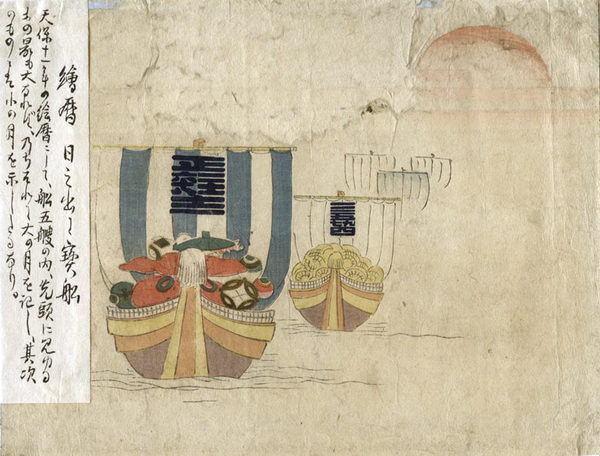 繪暦 日之出と寶船
天保十一年の絵暦にして、船五艘の内、先頭に見ゆる
もの最も大なれば、乃ちそれに大の月を記し、其次
のものには小の月を示したるなり。